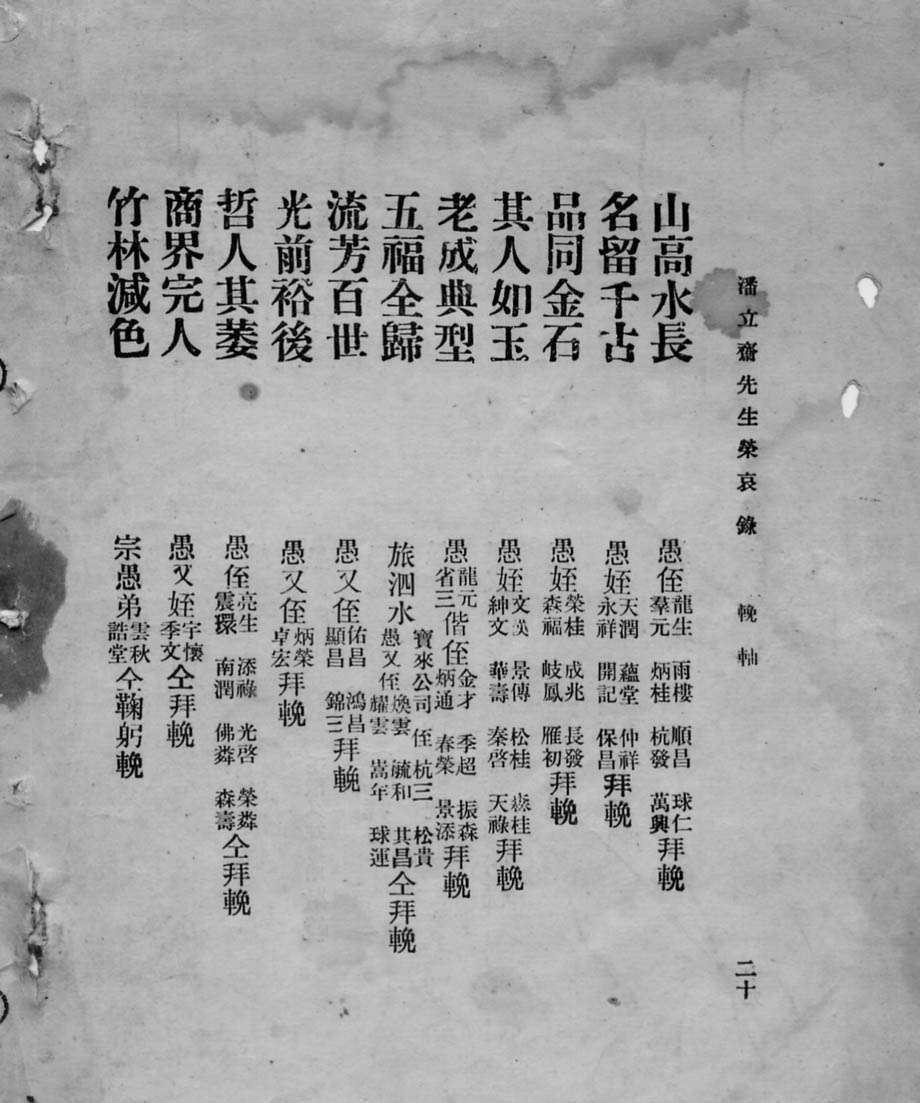 潘立齋先生榮哀錄　輓軸　二十
山高水長　愚侄龍生　羣元　雨樓　炳桂　順昌　杭發　球仁　萬興　拜輓
名留千古　愚姪天潤　永祥　蘊堂　開記　仲祥　保昌　拜輓
品同金石　愚姪榮桂　森福　成兆　岐鳳　長發　雁初　拜輓
其人如玉　愚姪文漢　紳文　景傳　華壽　松桂　秦啓　森桂　天祿　拜輓
老成典型　愚龍元　省三　偕侄金才　炳通　季超　春榮　振森　景添　拜輓
五福全歸　旅泗水寶來公司侄杭三　松貴　愚又侄煥雲　耀雲　毓和　嵩年　其昌　球運　仝拜輓
流芳百世　愚又侄佑昌　顯昌　鴻昌　錦三　拜輓
光前裕後　愚又侄炳榮　卓宏　拜輓
哲人其萎　愚侄亮生　震環　添祿　南潤　光啓　佛粦　榮粦　森壽　仝拜輓
商界完人　愚又姪宇懷　季文　仝拜輓
竹林減色　宗愚弟雲秋　誥堂　仝鞠躬輓